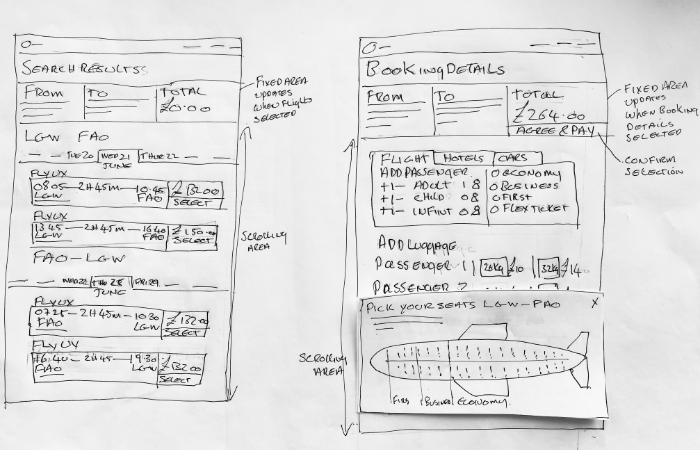 SEARCH RESULTS
FROM TO TOTAL
£0.00
LGW FAO
TUE 20 WED 21 THUR 22
JUNE
FLYUX
08.05 - 2H45M - 10.45 £132.00
LGW FAO SELECT
FLYUX
13.45 - 2H45M - 16.40 £150.00
LGW FAO SELECT
FAO - LGW
WED 28 THUR 28 FRI 29
JUNE
FLYUX
07.25 - 2H45M - 10.30 £132.00
FAO LGW SELECT
FLYUX
16.40 - 2H45 - 19.30 £132.00
FAO LGW SELECT
FIXED AREA
UPDATES
WHEN FLIGHTS
SELECTED
SCROLLING
AREA
BOOKING DETAILS
FROM TO TOTAL
£264.00
AGREE & PAY
FLIGHT HOTELS CARS
ADD PASSENGER O ECONOMY
+1- ADULT 18 O BUSINESS
+1- CHILD 08 O FIRST
+1- INFINT 08 O FLEX TICKET
ADD LUGGAGE
PASSENGER 1 20KG £10 32KG £14
PASSENGER 2
PICK YOUR SEATS LGW-FAO X
FIRS BUSINES ECONOMY
FIXED AREA
UPDATES
WHEN BOOKING
DETAILS
SELECTED
CONFIRM
SELECTION
SCROLLING
AREA